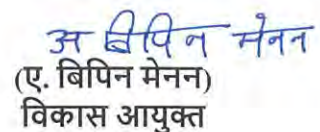 अ बिपिन मेनन
(ए. बिपिन मेनन)
विकास आयुक्त